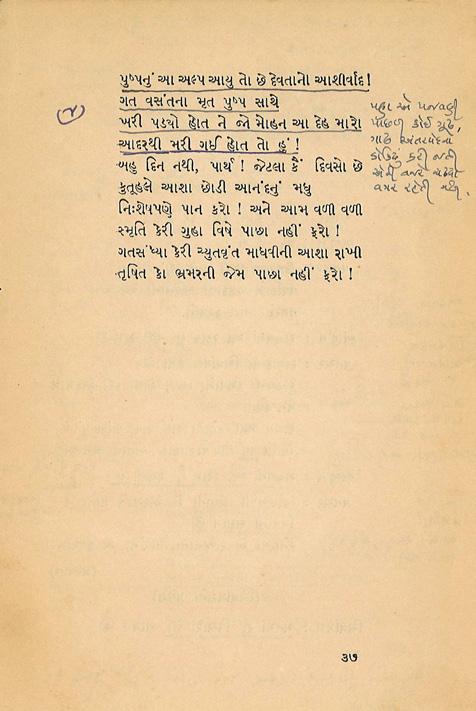 પુષ્પનું આ અલ્પ આયુ તો છે દેવતાનો આશીર્વાદ !
ગત વસંતના મૃત પુષ્પ સાથે
ખરી પડ્યો હોત ને જો મોહન આ દેહ મારો
આદરથી મરી ગઈ હોત તો હું !
બહુ દિન નથી, પાર્થ ! જેટલા કૈં દિવસો છે
કુતૂહલે આશા છોડી આનંદનું મધુ
નિઃશેષપણે પાન કરો ! અને આમ વળી વળી
સ્મૃતિ કેરી ગુહા વિષે પાછા નહીં ફરો !
ગતસંધ્યા કેરી ચ્યુતવૃંત માધવીની આશા રાખી
તૃષિત કો ભ્રમરની જેમ પાછા નહીં ફરો !
પાછળ કોઈ ગૂઢ,
ગાઢ અંતરવેદના
વગર રહેતી નથી.
૩૭